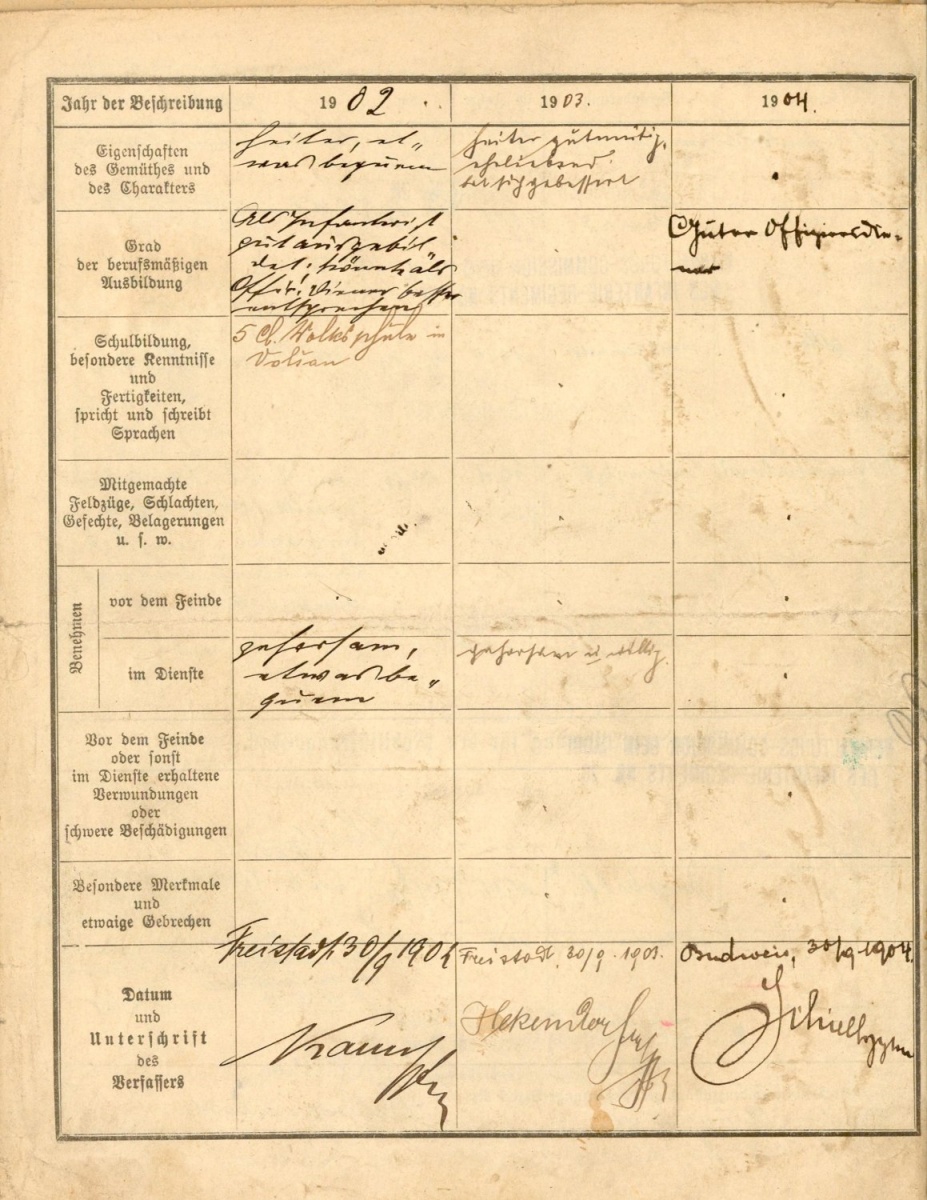 Jahr der Beschreibung
1902
1903.
1904.
Eigenschaften
des Gemüthes und
des Charakters
heiter, et„
was bequem
heiter gutmütig,
ehrliebend
hat sich gebessert
Grad
der berufsmäßigen
Ausbildung
Als Infanterist
gut ausgebil
det; könnte als
Offiz. Diener besser
entsprechen
Guter Offiziersdie„
ner
Schulbildung,
besondere Kenntnisse
und
Fertigkeiten,
spricht und schreibt
Sprachen
5 Cl. Volksschule in
Mitgemachte
Feldzüge, Schlachten,
Gefechte, Belagerungen
u. s. w.
Benehmen
vor dem Feinde
im Dienste
gehorsam,
etwas be„
quem
gehorsam u willig.
Vor dem Feinde
oder sonst
im Dienste erhaltene
Verwundungen
oder
schwere Beschädigungen
Besondere Merkmale
und
etwaige Gebrechen
Datum
und
Unterschrift
des
Verfassers
Freistadt 30/9 1902
Freistadt, 30/9. 1903.
Budweis, 30/9. 1904.